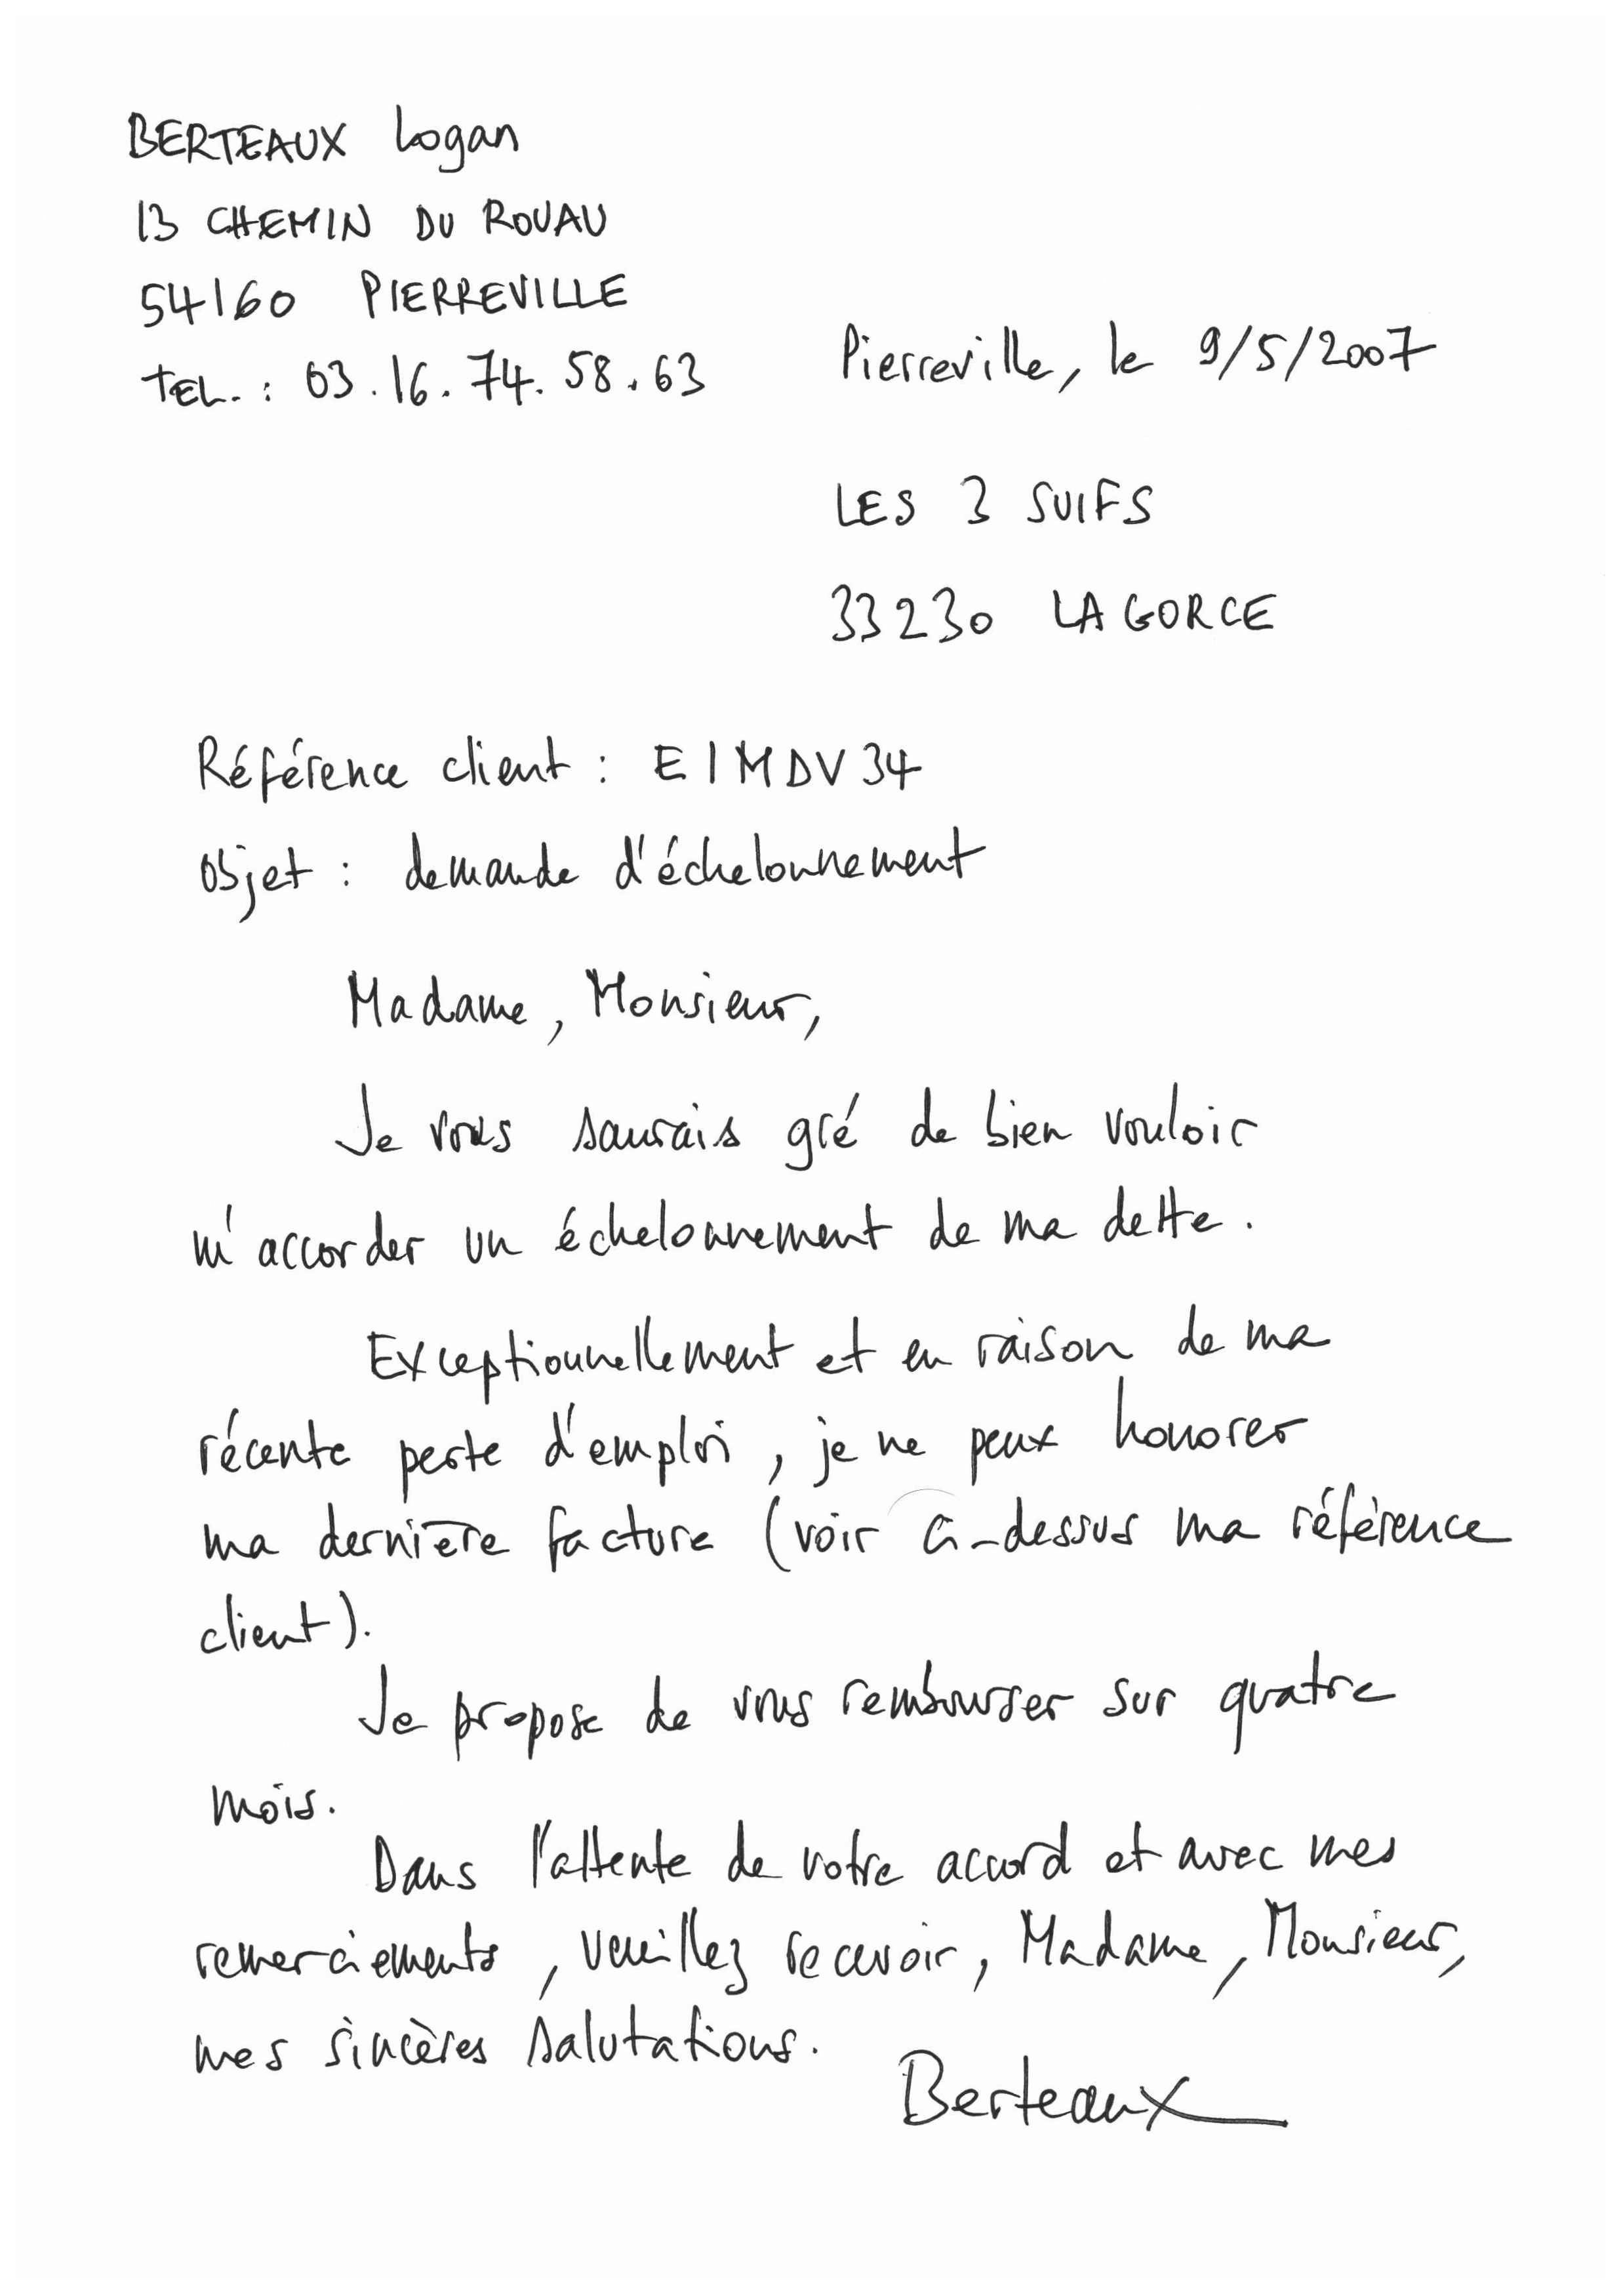 BERTEAUX Logan
13 CHEMIN DU ROUAU
54160 PIERREVILLE
TEL. : 03.16.74.58.63
Pierreville, le 9/5/2007
LES 3 SUIFS
33230 LAGORCE
Référence client : EIMDV34
Objet : demande d'échelonnement
Madame, Monsieur,
Je vous saurais gré de bien vouloir
m'accorder un échelonnement de ma dette.
Exceptionnellement et en raison de ma
récente perte d'emploi, je ne peux honorer
ma dernière facture (voir ci-dessus ma référence
client).
Je propose de vous rembourser sur quatre
mois.
Dans l'attente de votre accord et avec mes
remerciements, veuillez recevoir, Madame, Monsieur,
mes sincères salutations.
Berteaux